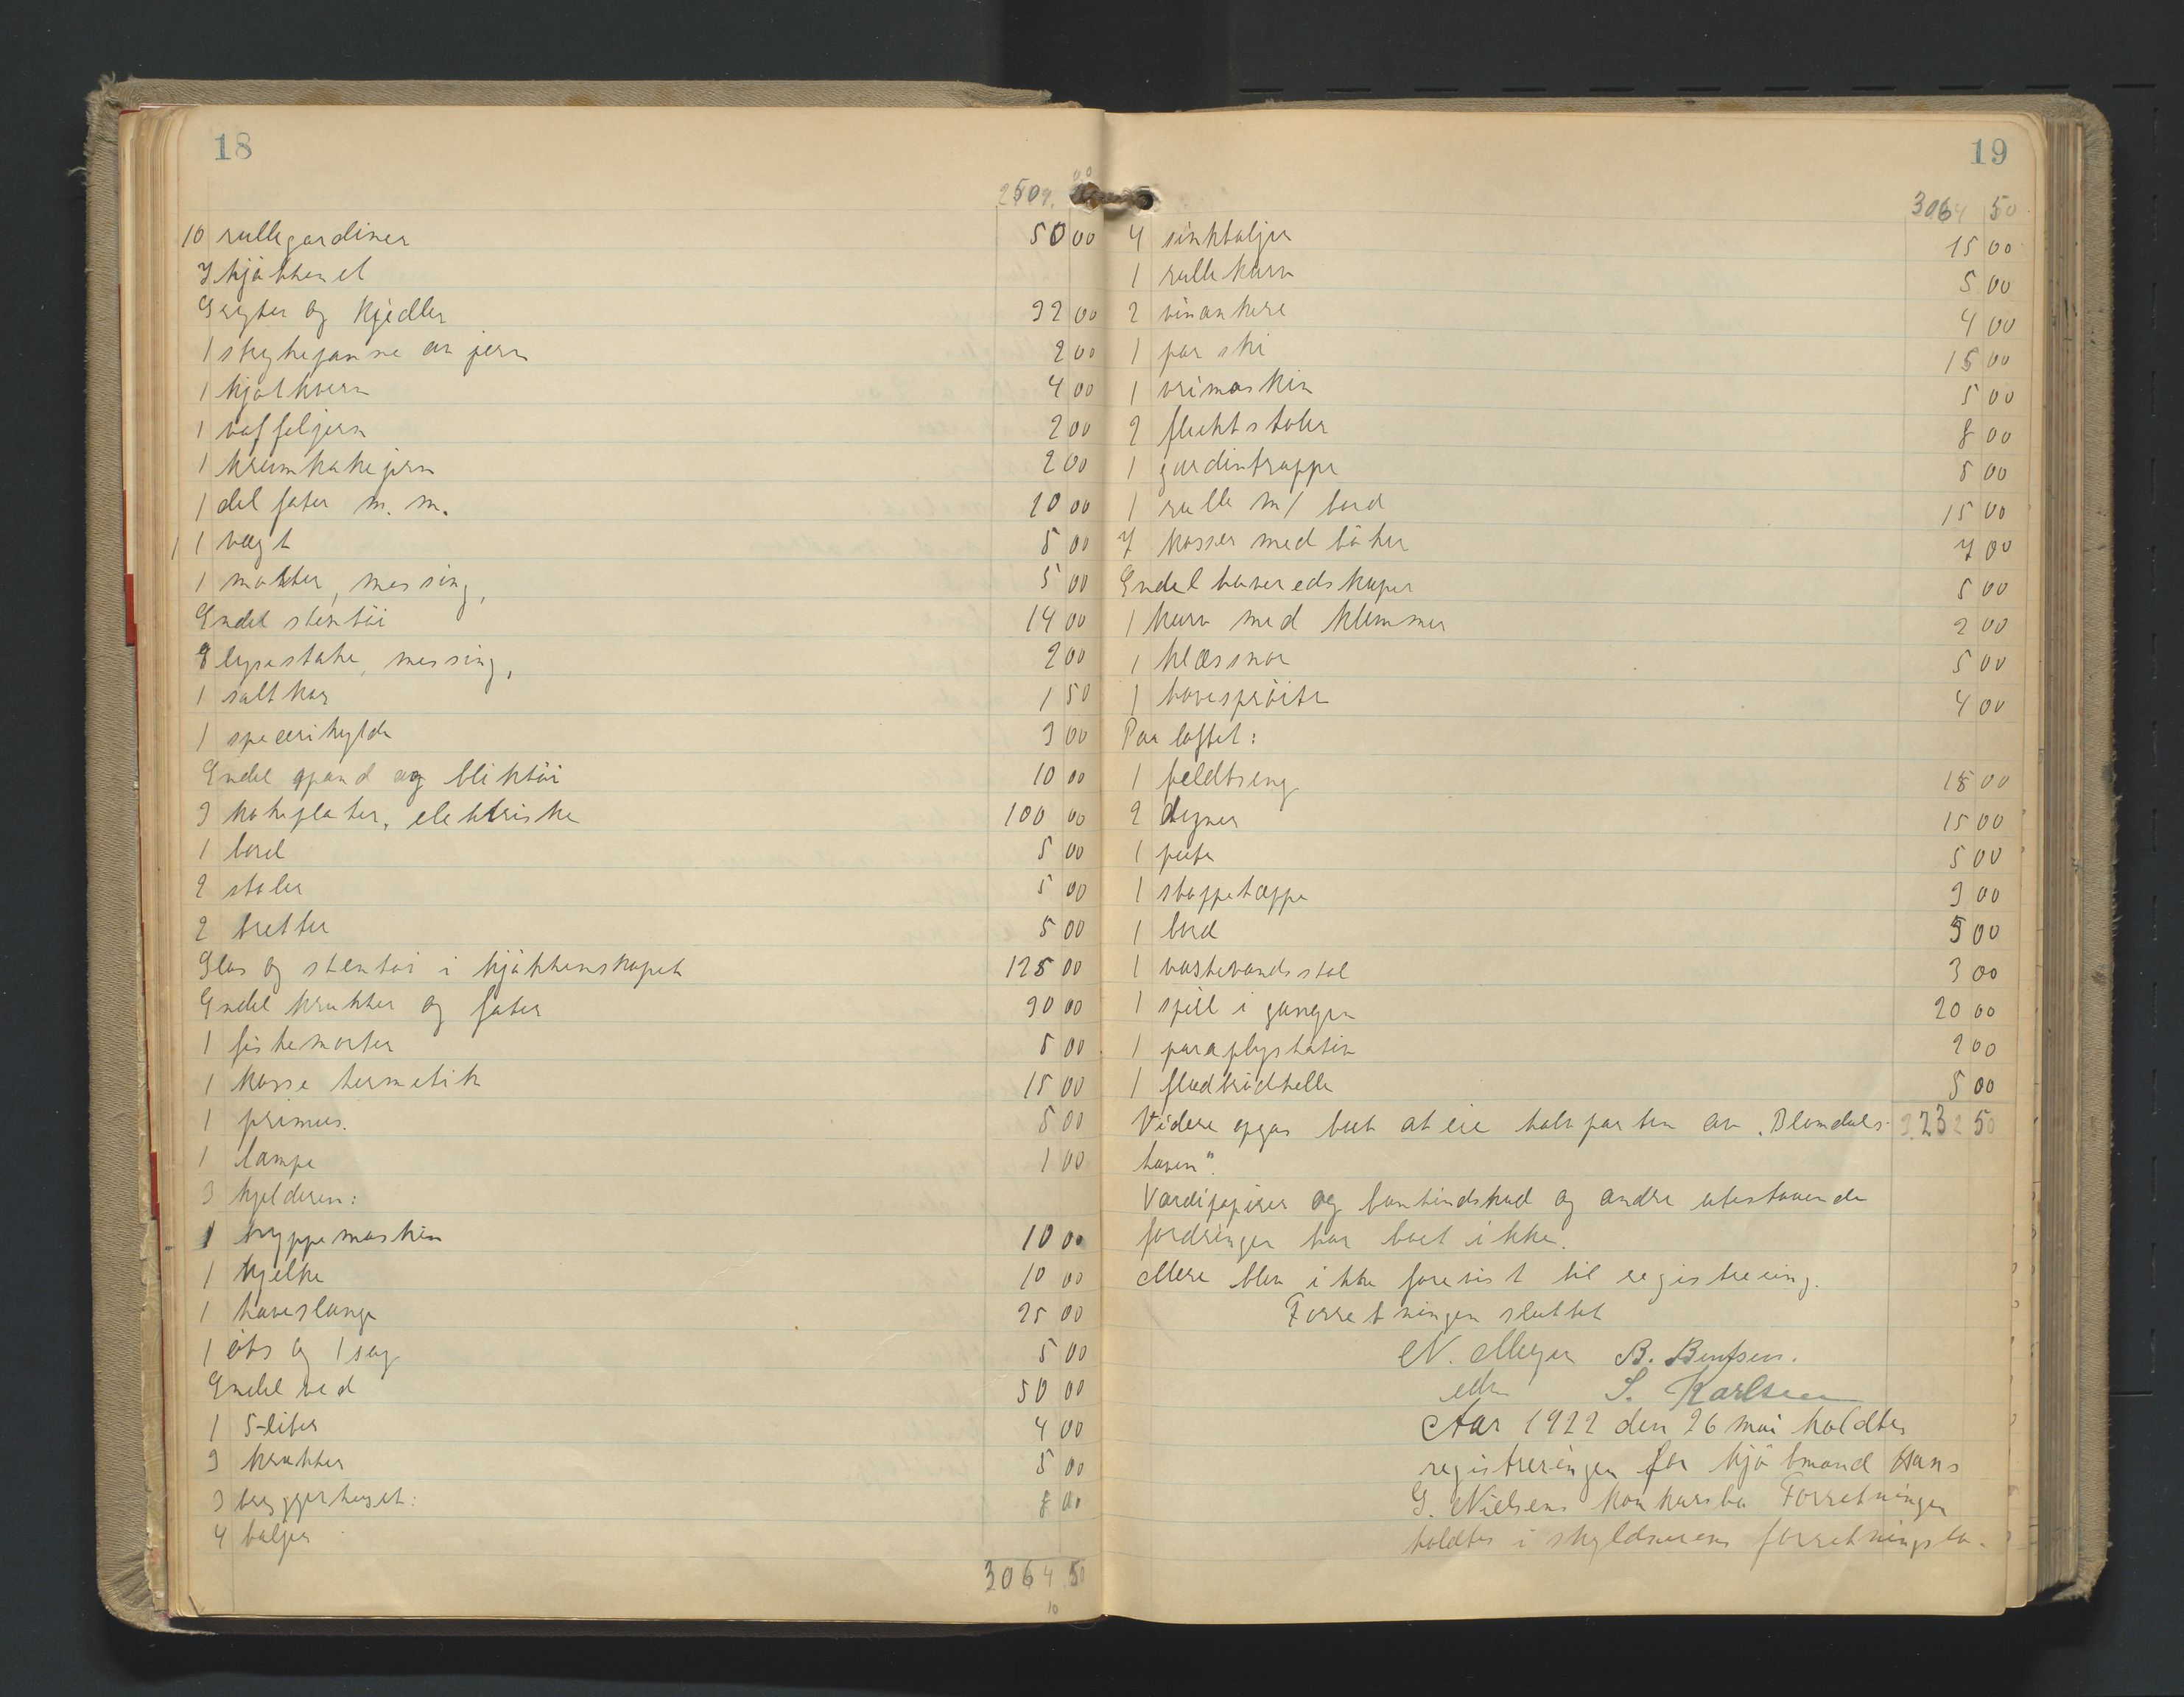 18
2509. 00
10 rullegardiner 50 00
I kjøkkenet
Gryter og kjedler 32 00
1 stekepanne av jern 2 00
1 kjøtkvern 4 00
1 vaffeljern 2 00
1 krumkakejern 2 00
1 del fater m. m. 10 00
1 1 vegt 5 00
1 morter, messing, 5 00
Endel stentöi 14 00
lysestake, messing, 2 00
1 saltkar 1 50
1 specerihylde 3 00
Endel spand og bliktöi 10 00
3 kokeplater, elektriske 100 00
1 bord 5 00
2 stoler 5 00
2 bretter 5 00
Glas og stentöi i kjökkenskapet 125 00
Endel krukker og fater 30 00
1 fiskemorter 5 00
1 kasse hermetik 15 00
1 primus. 5 00
1 lampe 1 00
I kjelderen:
1 bryggemaskin 10 00
1 kjelke 10 00
1 haveslange 25 00
1 öks og 1 sag 5 00
Endel ved 50 00
1 5-liter 4 00
3 krukker 5 00
I bryggerhuset: 8 00
4 baljer
3064 50
10
19
3064 50
4 sinkbaljer 15 00
1 rullekurv 5 00
2 vinankere 4 00
1 par ski 15 00
1 vrimaskin 5 00
2 fluktstoler 8 00
1 gardintrappe 5 00
1 rulle m/ bord 15 00
7 kasser med bøker 7 00
Endel haveredskaper 5 00
1 kurv med klemmer 2 00
1 klessnor 5 00
1 havesprøite 4 00
Paa loftet:
1 feldtseng 15 00
2 dyner 15 00
1 pute 5 00
1 stoppetæppe 3 00
1 bord 5 00
1 vaskevandsstol 3 00
1 speil i gangen 20 00
1 paraplystativ 2 00
1 fladbrødhelle 5 00
Videre opgas boet at eie halvparten av „Blomdals- 3.232 50
haven".
Værdipapirer og bankindskud og andre utestaaende
fordringer har boet ikke.
Mere blev ikke forevist til registrering.
Forretningen sluttet
N. Meyer B. Bentsen.
S. Karlsen
Aar 1922 den 26 mai holdtes
registreringen for kjøbmand Hans
G. Nielsens konkursbo Forretningen
holdtes i skyldnerens forretningslo-